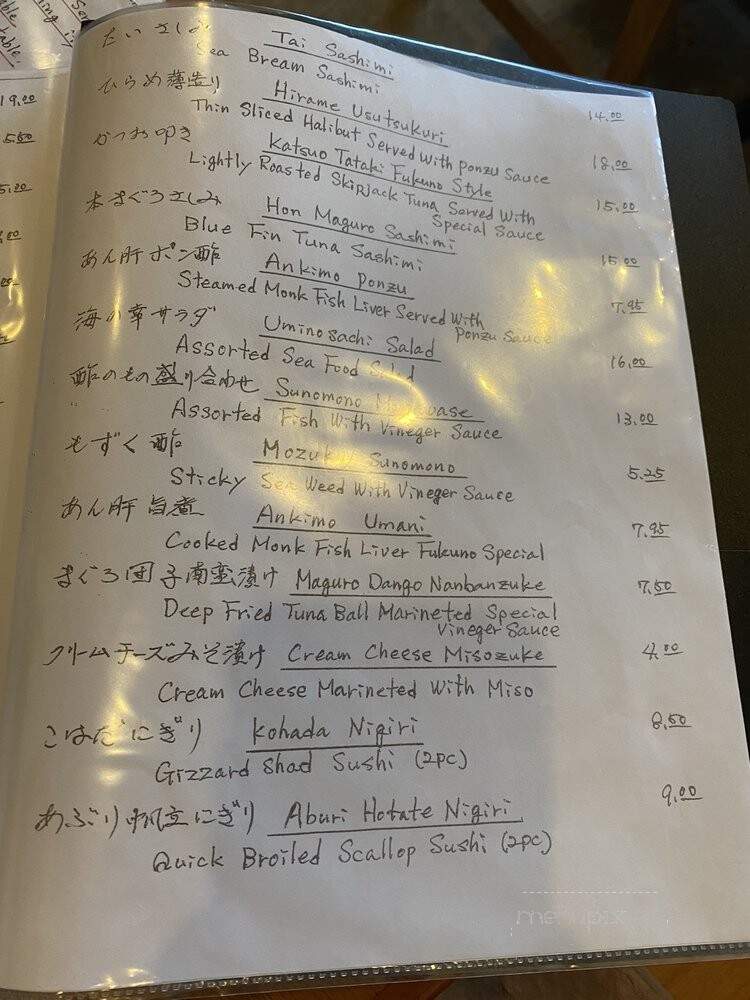 19.00
5.50
たいさしみ Tai Sashimi
Sea Bream Sashimi 14.00
ひらめ薄造り Hirame Usutsukuri
Thin Sliced Halibut Served With Ponzu Sauce 18.00
かつお叩き Katsuo Tataki Fukuno Style
Lightly Roasted Skipjack Tuna Served With 15.00
Special Sauce
本まぐろさしみ Hon Maguro Sashimi
Blue Fin Tuna Sashimi 15.00
あん肝ポン酢 Ankimo Ponzu
Steamed Monk Fish Liver Served With 7.95
Ponzu Sauce
海の幸サラダ Uminosachi Salad
Assorted Sea Food Salad 16.00
酢のもの盛り合わせ Sunomono
Assorted Fish With Vineger Sauce 13.00
もずく酢 Mozuku Sunomono
Sticky Sea Weed With Vineger Sauce 5.25
あん肝旨煮 Ankimo Umani
Cooked Monk Fish Liver Fukuno Special 7.95
まぐろ団子南蛮漬け Maguro Dango Nanbanzuke 7.50
Deep Fried Tuna Ball Marineted Special
Vineger Sauce
クリームチーズみそ漬け Cream Cheese Misozuke 4.00
Cream Cheese Marineted With Miso
こはだにぎり Kohada Nigiri 8.50
Gizzard Shad Sushi (2pc)
あぶり帆立にぎり Aburi Hotate Nigiri 9.00
Quick Broiled Scallop Sushi (2pc)
menupix